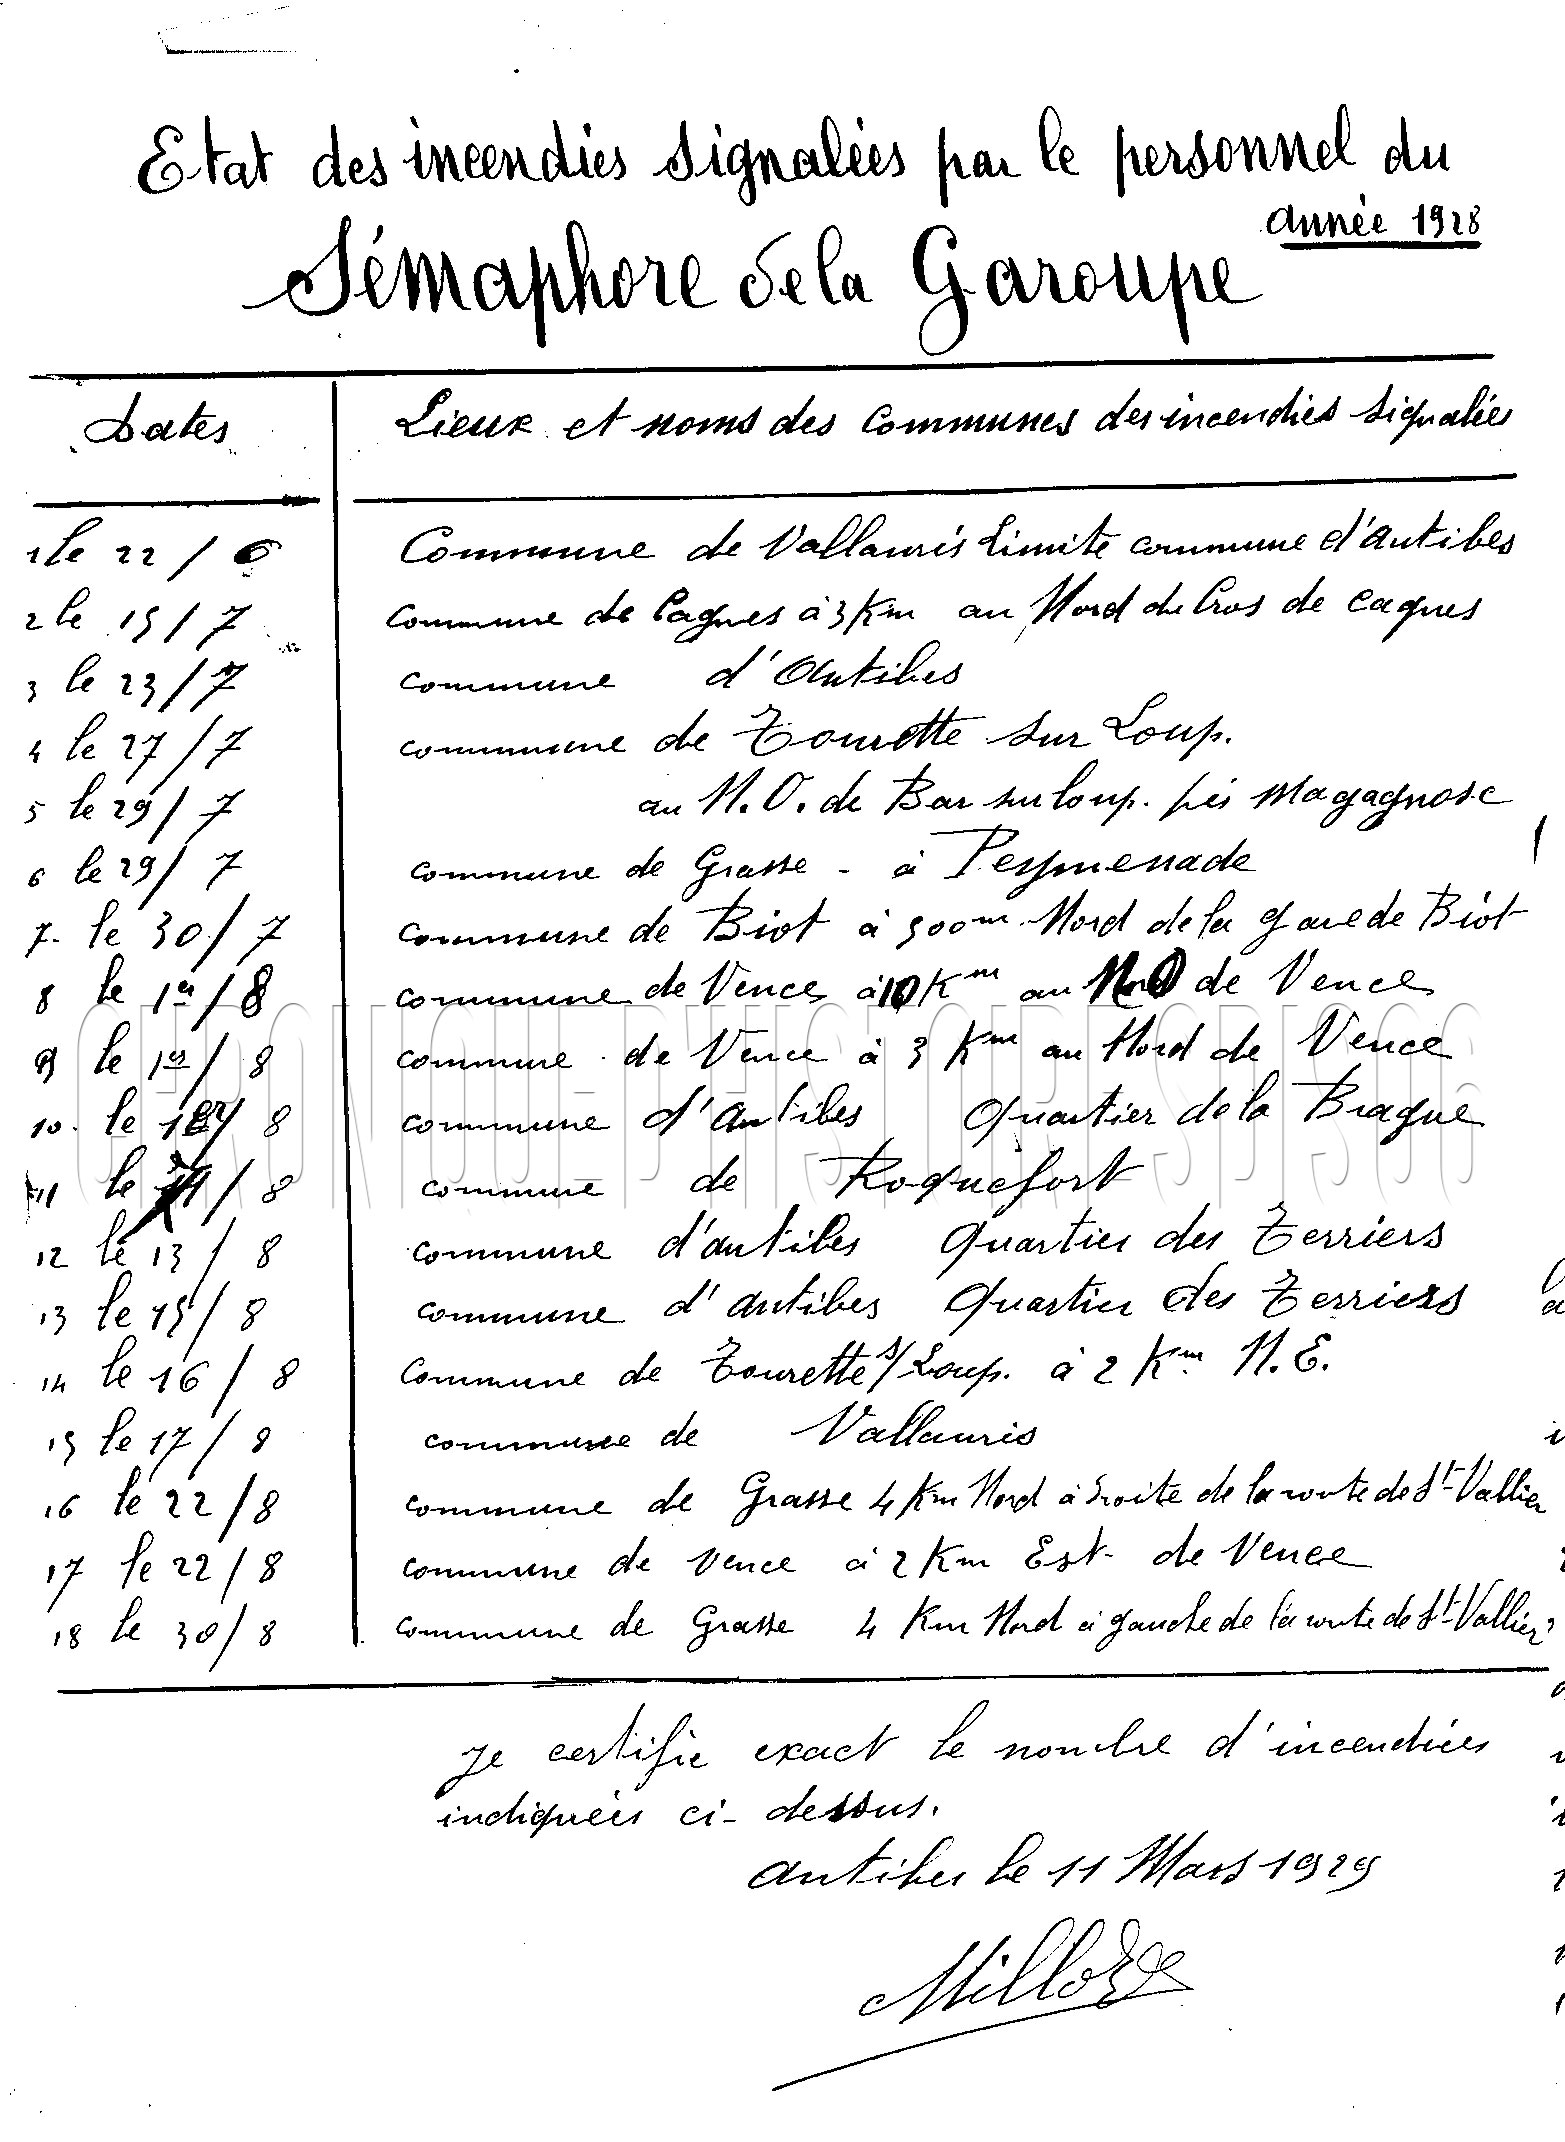 Etat des incendies signalées par le personnel du
année 1928
Sémaphore de la Garoupe
Dates Lieux et noms des communes des incendies signalées
1 le 22/6 Commune de Vallauris Limite commune d'Antibes
2 le 15/7 commune de Cagnes à 3 Km au Nord du Cros de Cagnes
3 le 23/7 commune d'Antibes
4 le 27/7 commune de Tourette sur Loup.
5 le 29/7 au N.O. de Bar sur loup. près Magagnosc
6 le 29/7 commune de Grasse - à
7. le 30/7 commune de Biot à 500m Nord de la gare de Biot
8 le 1er/8 commune de Vence à 10 Km au de Vence
9 le 1er/8 commune de Vence à 3 Km au Nord de Vence
10. le /8 commune d'Antibes Quartier de la Brague
11 le /8 commune de Roquefort
12 le 13/8 commune d'antibes Quartier des Terriers
13 le 15/8 commune d'antibes Quartier des Terriers
14 le 16/8 commune de Tourette s/Loup. à 2 Km N.E.
15 le 17/8 commune de Vallauris
16 le 22/8 commune de Grasse 4 Km Nord à droite de la route de St-Vallier
17 le 22/8 commune de Vence à 2 Km Est de Vence
18 le 30/8 commune de Grasse 4 Km Nord à gauche de la route de St-Vallier
Je certifie exact le nombre d'incendiées
indiquées ci-dessus.
Antibes le 11 Mars 1929